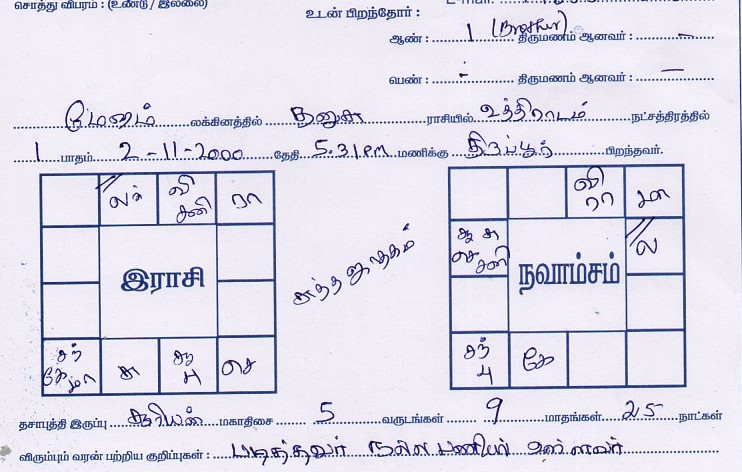 சொத்து விபரம் : (உண்டு / இல்லை)
உடன் பிறந்தோர் :
ஆண் : 1 (Brother) திருமணம் ஆனவர் : —
பெண் : - திருமணம் ஆனவர் : —
மேஷம் லக்கினத்தில் தனுசு ராசியில் உத்திராடம் நட்சத்திரத்தில்
1 பாதம் 2-11-2000 தேதி 5.31 PM மணிக்கு திருப்பூர் பிறந்தவர்.
ல வி சனி ரா
இராசி
சுத்த ஜாதகம்
சந் கே மா சு செ
வி ரா
சனி ல
நவாம்சம்
சந் பு கே
தசாபுத்தி இருப்பு சூரியன் மகாதிசை 5 வருடங்கள் 9 மாதங்கள் 25 நாட்கள்
விரும்பும் வரன் பற்றிய குறிப்புகள் : படித்தவர் நல்ல பணியில் உள்ளவர்